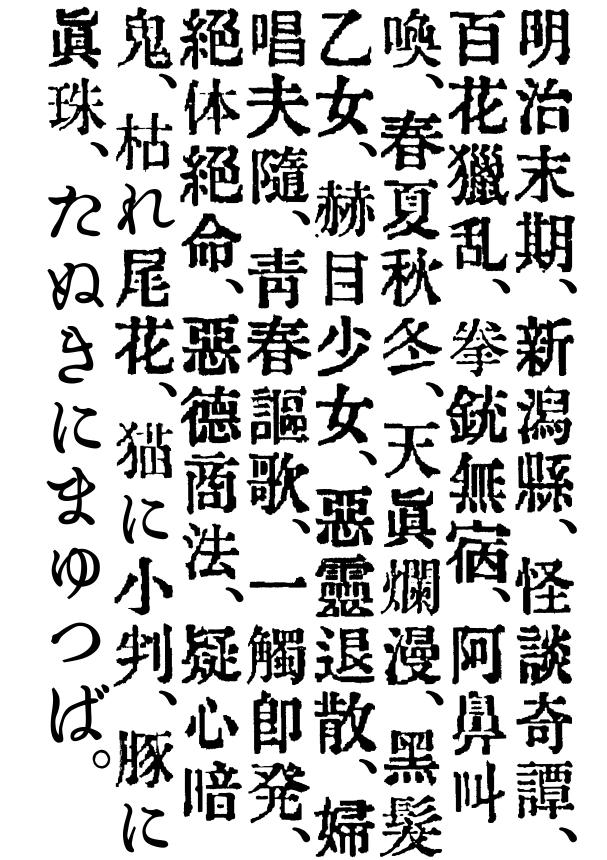 明治末期、新潟縣、怪談奇譚、
百花獵乱、拳銃無宿、阿鼻叫
喚、春夏秋冬、天眞爛漫、黑髮
乙女、赫目少女、惡靈退散、婦
唱夫隨、靑春謳歌、一觸卽発、
絕体絕命、惡德商法、疑心暗
鬼、枯れ尾花、猫に小判、豚に
眞珠、たぬきにまゆつば。